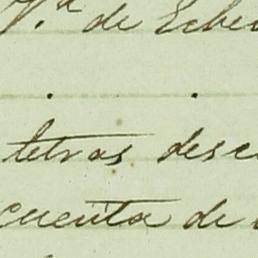 V.ª de Eche
letras desc
cuenta de